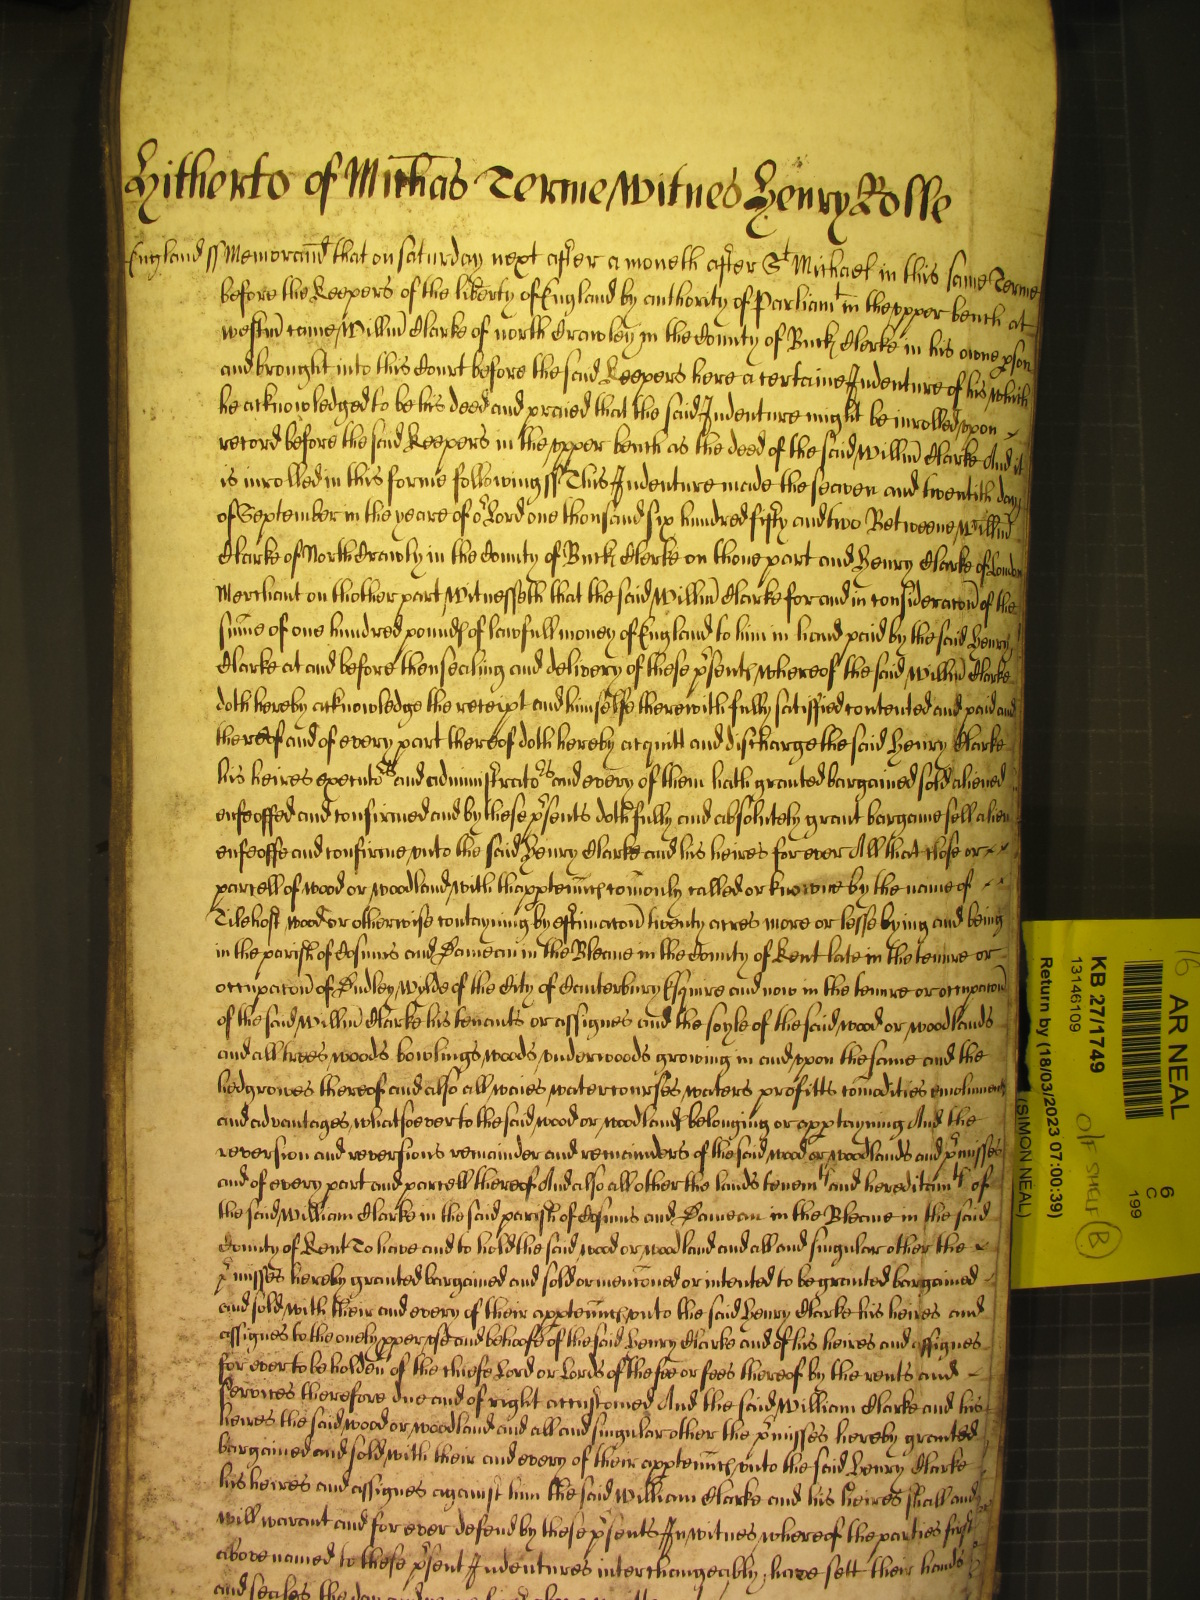 Hitherto of Michas Terme Witnes Henry Rolle
England ss Memorand that on saturday next after a moneth after St Michael in this same Terme
before the Keepers of the liberty of England by authority of Parliamt in the upper bench at
westm came Willm Clarke of north Crawley in the County of Buck Clerke in his owne pson
and brought into this Court before the said Keepers here a certaine Indenture of his which
he acknowledged to be his deed and praied that the said Indenture might be inrolled upon
record before the said Keepers in the upper bench as the deed of the said Willm Clarke And it
is inrolled in this forme following ss This Indenture made the seaven and twentith day
of September in the yeare of or Lord one thousand six hundred fifty and two Betweene Willm
Clarke of North Crawly in the County of Buck Clerke on thone part and Henry Clarke of London
Merchant on thother part Witnesseth that the said Willm Clarke for and in consideracon of the
sume of one hundred pounds of lawfull money of England to him in hand paid by the said Henry
Clarke at and before thensealing and delivery of these psents whereof the said Willm Clarke
doth hereby acknowledge the receipt and himselfe therewith fully satisfied contented and paid and
thereof and of every part thereof doth hereby acquitt and discharge the said Henry Clarke
his heires executors and administrators and every of them hath granted bargained sold aliened
enfeoffed and confirmed and by these psents doth fully and absolutely grant bargaine sell alien
enfeoffe and confirme unto the said Henry Clarke and his heires for ever All that close or
parcell of wood or woodland with thapptennces comonly called or knowne by the name of
Tilehost wood or otherwise contayning by estimacon twenty acres more or lesse lying and being
in the parish of Cosmus and Damean in the Bleane in the County of Kent late in the tenure or
occupacon of Dudley Wylde of the City of Canterbury Esquire and now in the tenure or occupacon
of the said Willm Clarke his tenants or assignes and the soyle of the said wood or woodlands
and all trees woods bowlings woods underwoods growing in and upon the same and the
hedgrowes thereof and also all waies watercourses waters profitts comodities emolumts
and advantages whatsoever to the said wood or woodlands belonging or apptayning And the
reversion and reversions remainder and remainders of the said wood or woodlands and pmisses
and of every part and parcell thereof And also all other the lands tenemts and hereditamts of
the said William Clarke in the said parish of Cosmus and Damean in the Bleane in the said
County of Kent To have and to hold the said wood or woodland and all and singular other the
pmisses hereby granted bargained and sold or mentoned or intented to be granted bargained
and sold with their and every of their apptennces unto the said Henry Clarke his heires and
assignes to the onely pper use and behoofe of the said Henry Clarke and of his heires and assignes
for ever to be holden of the chiefe Lord or Lords of the fee or fees thereof by the rents and
services therefore due and of right accustomed And the said William Clarke and his
heires the said wood or woodland and all and singular other the pmisses hereby granted
bargained and sold with their and every of their apptennces unto the said Henry Clarke
his heires and assignes against him the said William Clarke and his heires shall and
will warant and for ever defend by these psents In witnes whereof the parties first
above named to these psent Indentures interchangeably have sett their hands
and seales the day and
16 AR NEAL
6
C
199
KB 27/1749
13146109
OFF SHELF B
Return by (18/03/2023 07:00:39)
(SIMON NEAL)